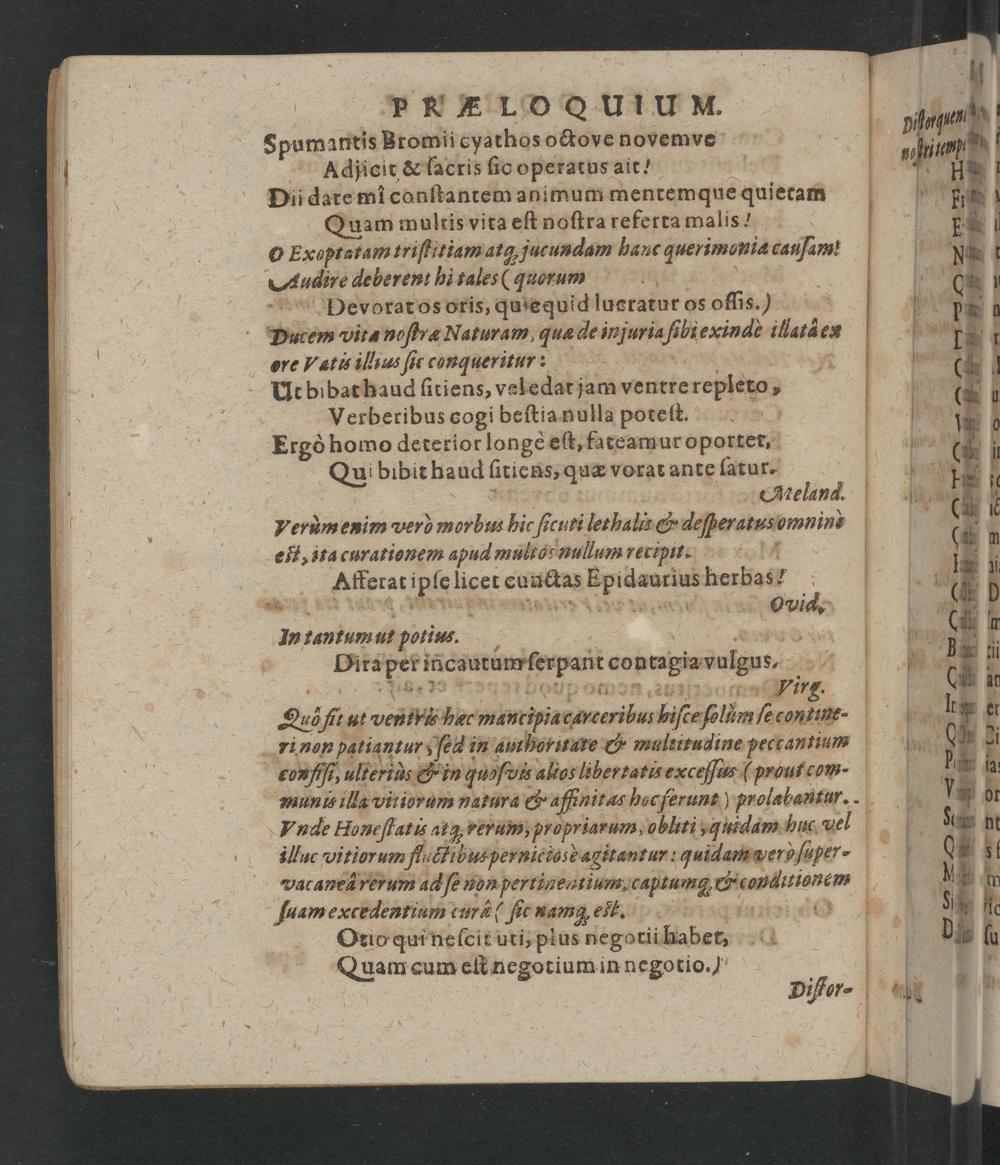 PRÆLOQUIUM.
Spumantis Bromii cyathos octove novemve
Adjicit & sacris sic operatus ait!
Dii date mî constantem animum mentemque quietam
Quam multis vita est nostra referta malis!
O Exoptatam tristitiam atq; jucundam hanc querimoniæ causam!
Audire deberent hi tales (quorum
Devorat os oris, quicquid lucratur os ossis.)
Ducem vitæ nostræ Naturam, quæ de injuria sibi exindè illatâ ex
ore Vatis illius sic conqueritur:
Ut bibat haud sitiens, vel edat jam ventre repleto,
Verberibus cogi bestia nulla potest.
Ergò homo deterior longè est, fateamur oportet,
Qui bibit haud sitiens, quæ vorat ante satur.
Meland.
Verùm enim verò morbus hic sicuti lethalis & desperatus omninè
est, ita curationem apud multos nullum recipit.
Afferat ipse licet cunctas Epidaurius herbas!
Ovid.
In tantum ut potius.
Dira per incautum serpant contagia vulgus.
Virg.
Quô fit ut ventris hæc mancipia carceribus hisce solùm se contine-
ri non patiantur, sed in authoritate & multitudine peccantium
confisi, ulteriùs & in quosvis alios libertatis excessus (prout com-
munis illa vitiorum natura & affinitas hoc ferunt) prolabantur.
Vnde Honestatis atq; rerum, propriarum, obliti, quidam huc vel
illuc vitiorum fluctibus perniciosè agitantur: quidam verò super-
vacaneâ rerum ad se non pertinentium, captumq; & conditionem
suam excedentium curâ (sic namq; est.
Otio qui nescit uti, plus negotii habet,
Quam cum est negotium in negotio.)
Distor-
Distorquen
nostri temp
H
Fi
E
N
Q
P